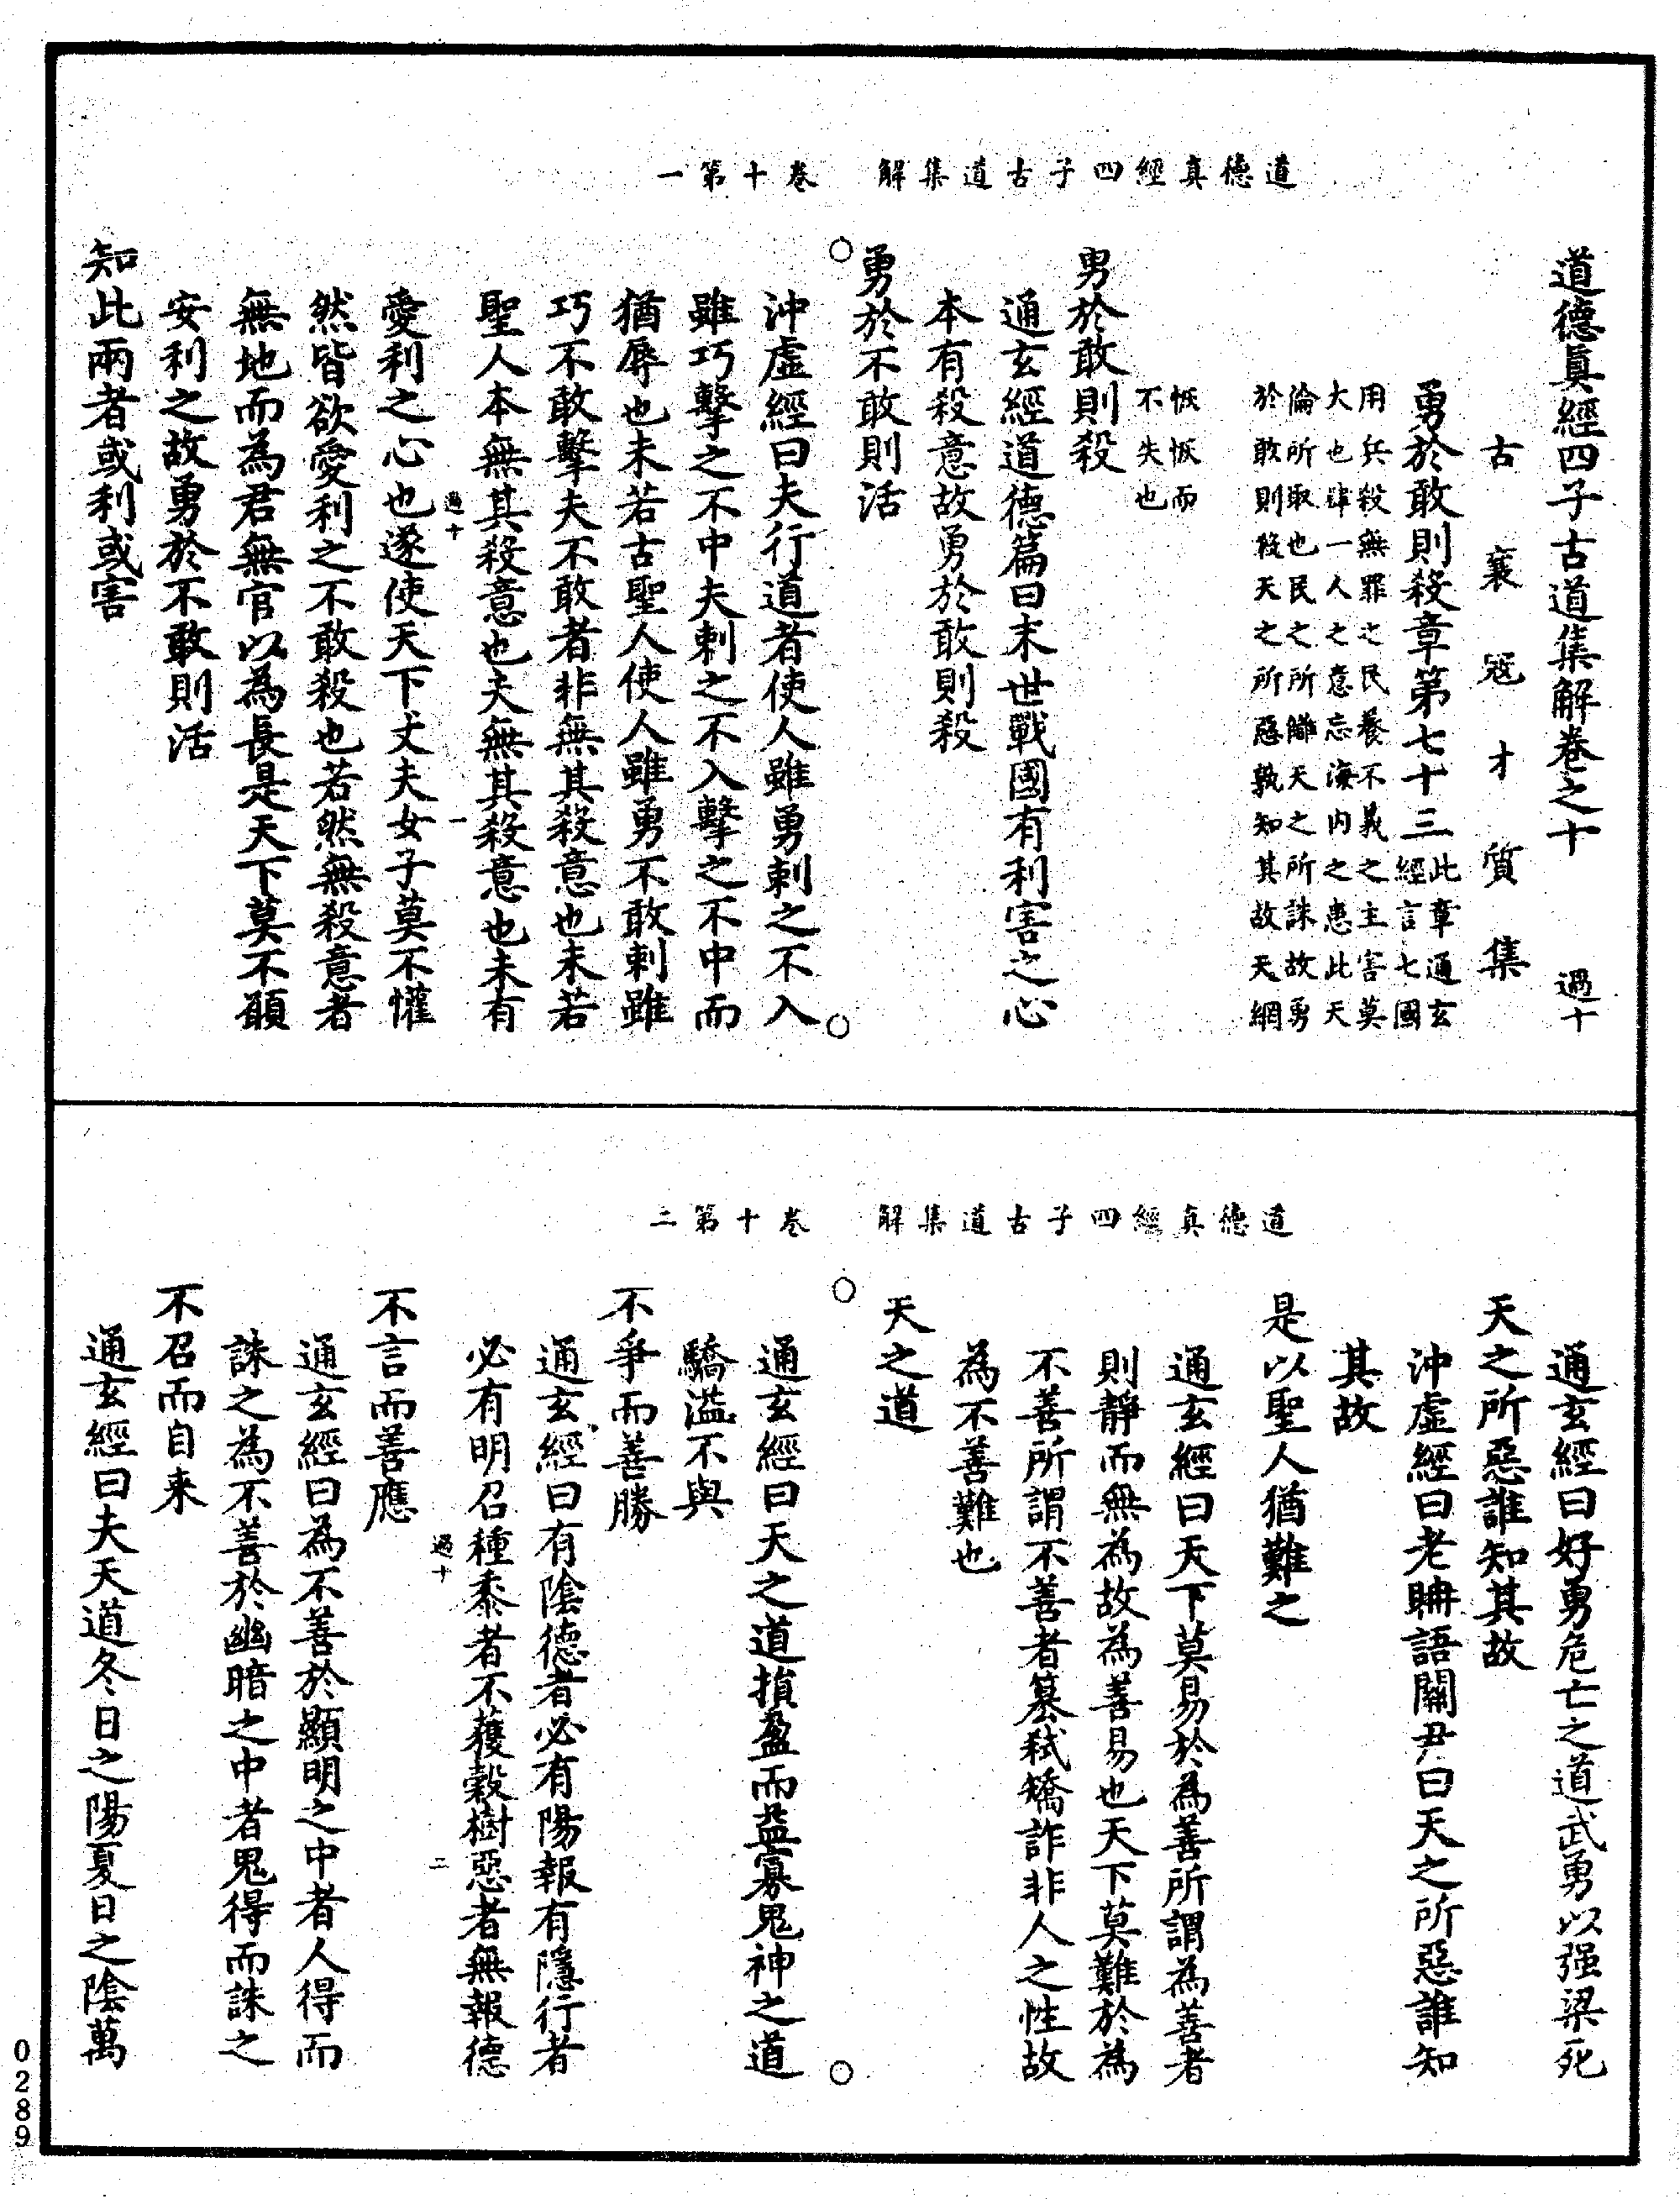 道德真經四子古道集解 卷十第一
道德眞經四子古道集解卷之十 過十
古襄寇才質集
勇於敢則殺章第七十三此章通玄
經言七國
用兵殺無罪之民養不義之主害莫
大也肆一人之意忘海内之患此天
倫所取也民之所讎天之所誅故勇
於敢則殺天之所惡孰知其故天網
恢恢而
不失也
勇於敢則殺
通玄經道德篇曰末世戰國有利害之心
本有殺意故勇於敢則殺
勇於不敢則活
沖虛經曰夫行道者使人雖勇刺之不入
雖巧擊之不中夫刺之不入擊之不中而
猶辱也未若古聖人使人雖勇不敢刺雖
巧不敢擊夫不敢者非無其殺意也未若
聖人本無其殺意也夫無其殺意也未有
過十 一
愛利之心也遂使天下丈夫女子莫不懽
然皆欲愛利之不敢殺也若然無殺意者
無地而為君無官以為長是天下莫不願
安利之故勇於不敢則活
知此兩者或利或害
道德真經四子古道集解 卷十第二
通玄經曰好勇危亡之道武勇以强梁死
天之所惡誰知其故
沖虛經曰老聃語關尹曰天之所惡誰知
其故
是以聖人猶難之
通玄經曰天下莫易於為善所謂為善者
則靜而無為故為善易也天下莫難於為
不善所謂不善者篡弒矯詐非人之性故
為不善難也
天之道
通玄經曰天之道損盈而益寡鬼神之道
驕溢不與
不爭而善勝
通玄經曰有陰德者必有陽報有隱行者
必有明召種黍者不蕧穀樹惡者無報德
過十 二
不言而善應
通玄經曰為不善於顯明之中者人得而
誅之為不善於幽暗之中者鬼得而誅之
不召而自来
通玄經曰夫天道冬日之陽夏日之陰萬
0289